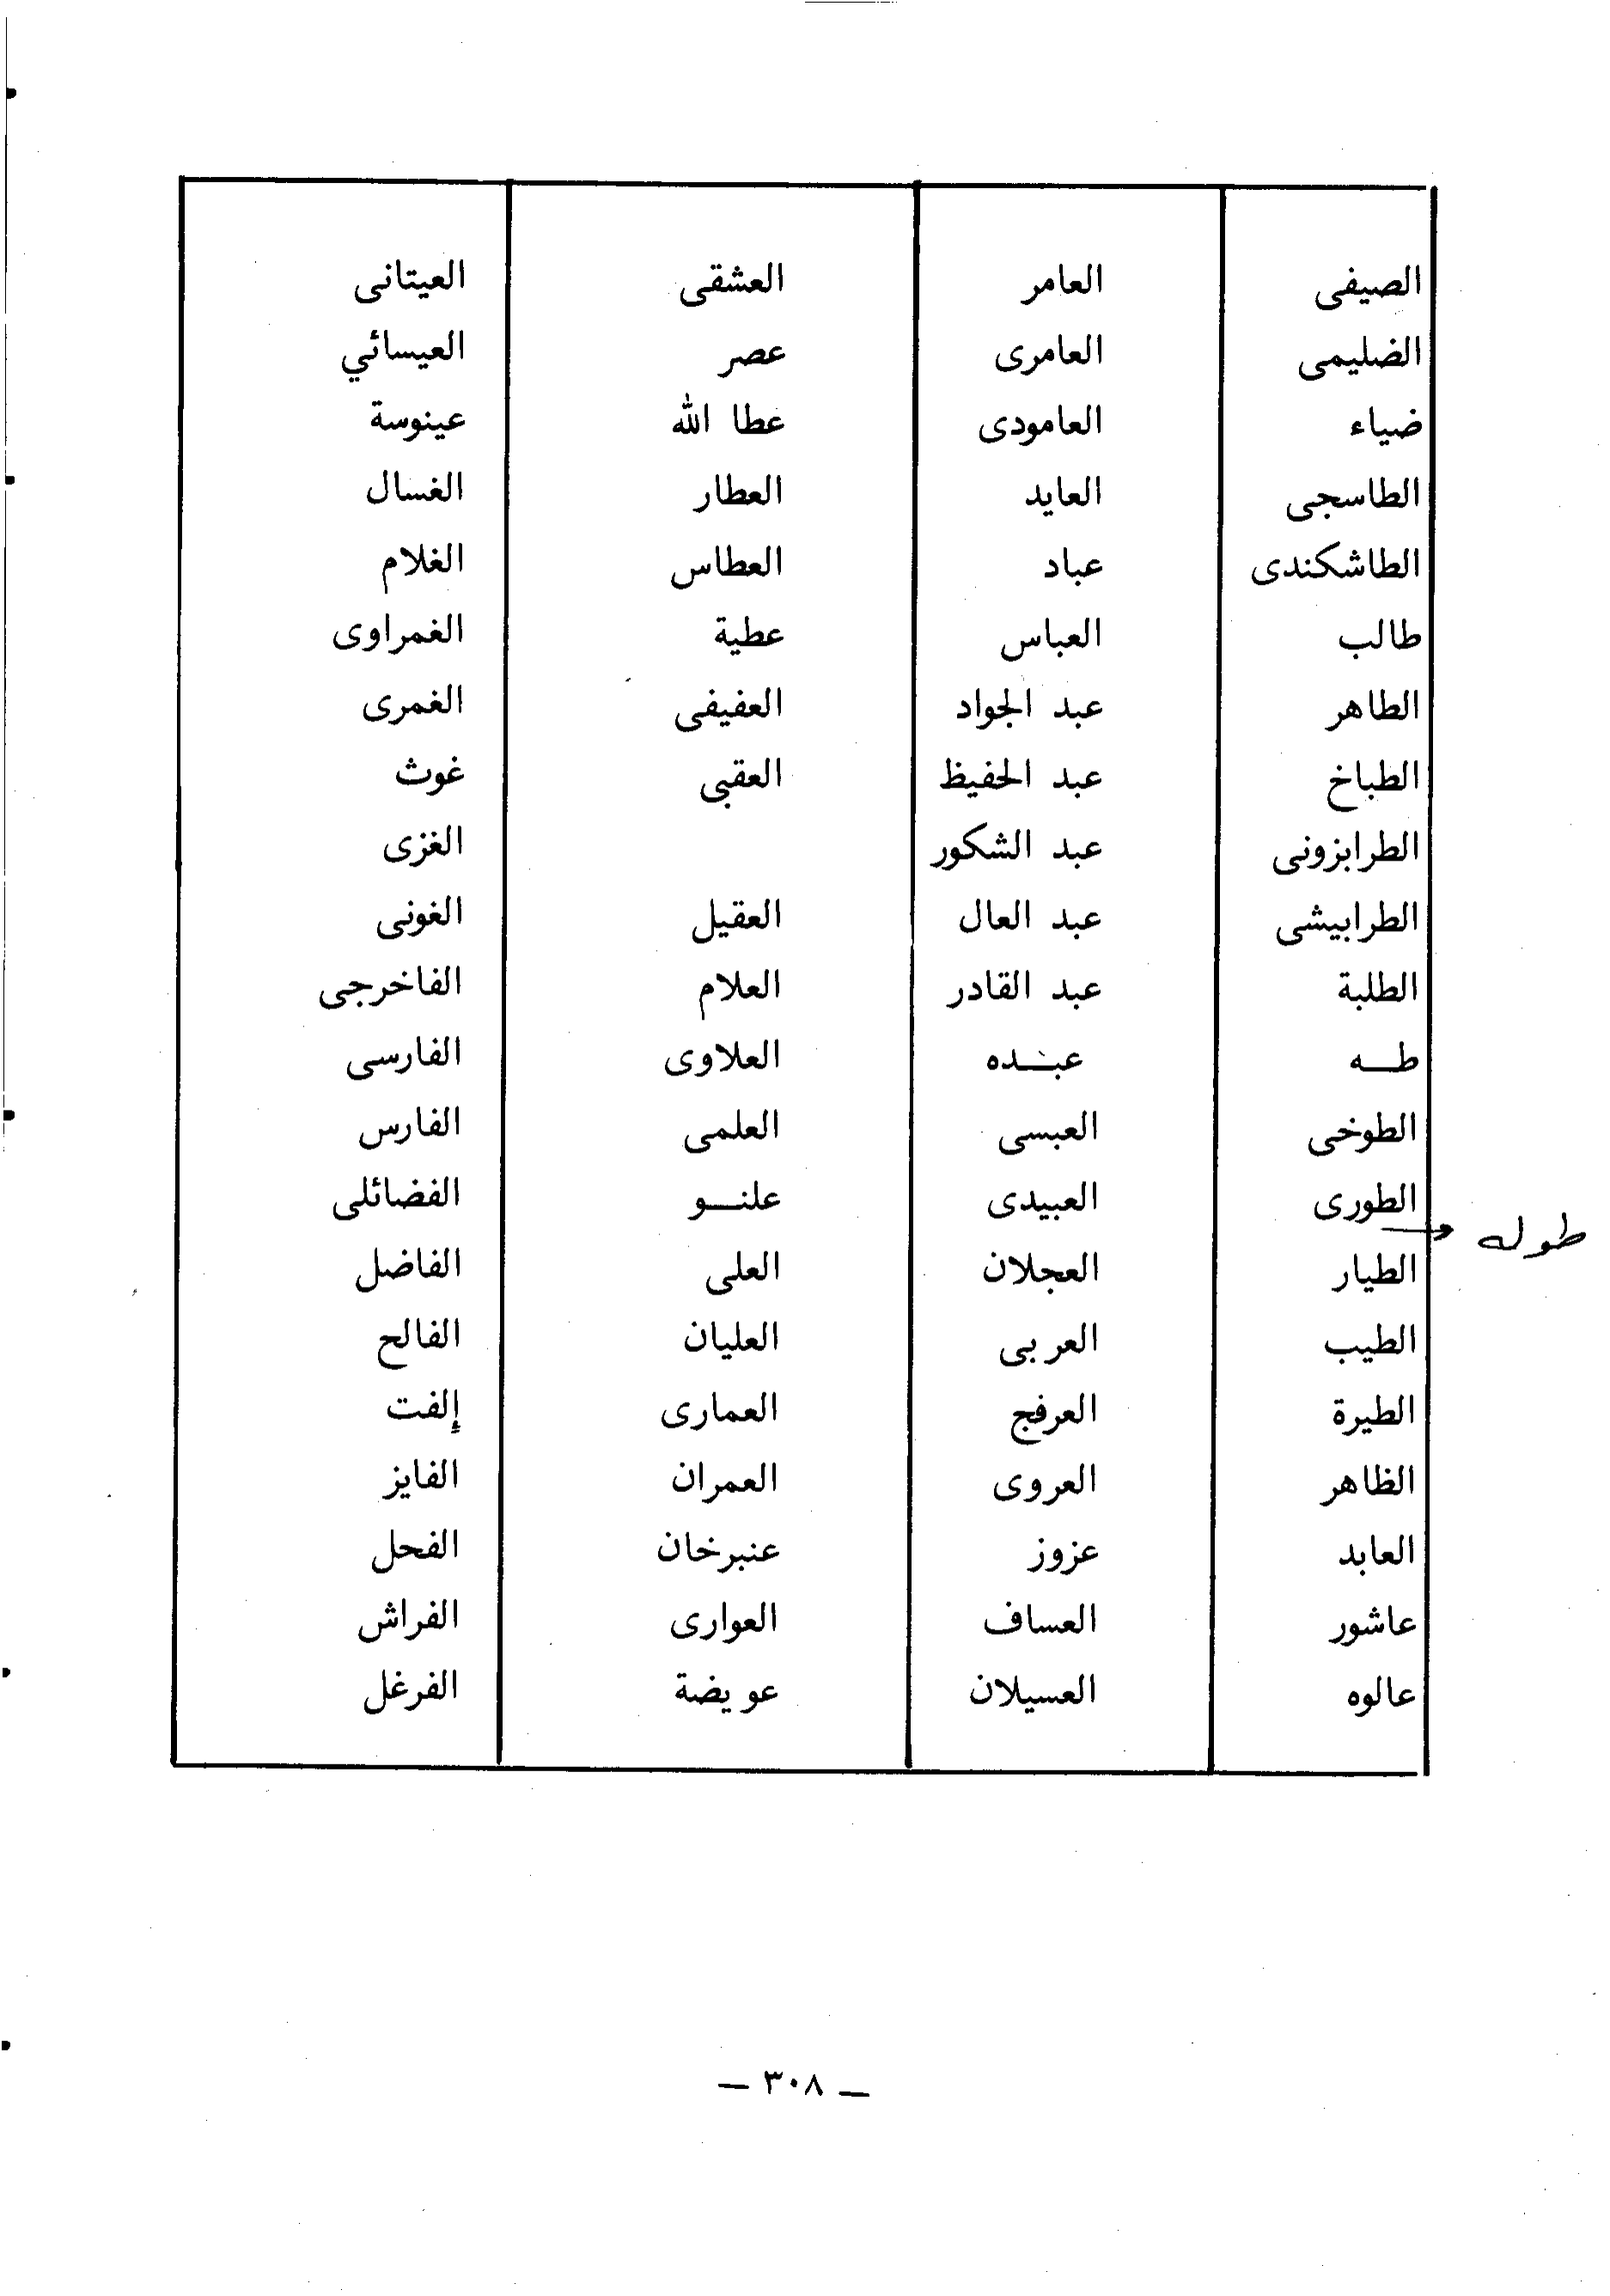 الصيفى العامر العشقى العيتانى
الضليمى العامرى عصر العيسائي
ضياء العامودى عطا الله عينوسة
الطاسجى العايد العطار الغسال
الطاشكندى عباد العطاس الغلام
طالب العباس عطية الغمراوى
الطاهر عبد الجواد العفيفى الغمرى
الطباخ عبد الحفيظ العقبى غوث
الطرابزونى عبد الشكور الغزى
الطرابيشى عبد العال العقيل الغونى
الطلبة عبد القادر العلام الفاخرجى
طـه عبـده العلاوى الفارسى
الطوخى العبسى العلمى الفارس
الطورى العبيدى علنـو الفضائلى
طوله
الطيار العجلان العلى الفاضل
الطيب العربى العليان الفالح
الطيرة العرفج العمارى إلفت
الظاهر العروى العمران الفايز
العابد عزوز عنبرخان الفحل
عاشور العساف العوارى الفراش
عالوه العسيلان عويضة الفرغل
— ٣٠٨ —